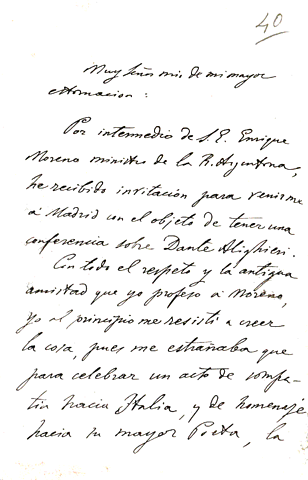 40
Muy Señor mio de mi mayor
estimacion:
Por intermedio de S. E. Enrique
Moreno ministro de la R. Argentina,
he recibido invitación para venirme
á Madrid con el objeto de tener una
conferencia sobre Dante Alighieri.
Con todo el respeto y la antigua
amistad que yo profeso á Moreno,
yo al principio me resistí a creer
la cosa, pues me estrañaba que
para celebrar un acto de simpa-
tia hacia Italia, y de homenaje
hacia su mayor Poeta, la